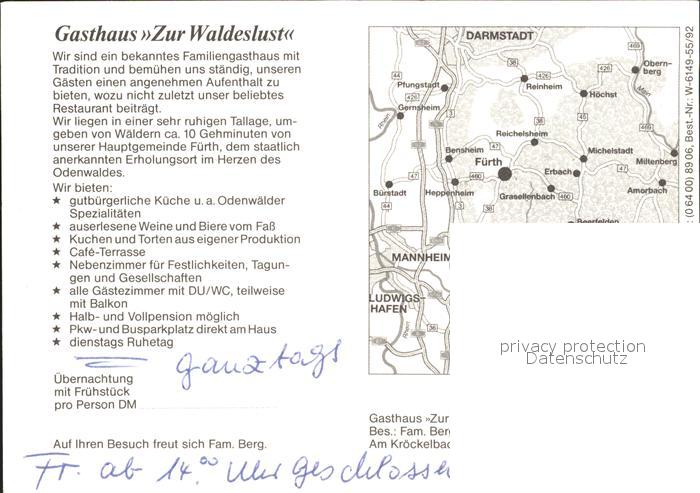 Gasthaus »Zur Waldeslust«
Wir sind ein bekanntes Familiengasthaus mit
Tradition und bemühen uns ständig, unseren
Gästen einen angenehmen Aufenthalt zu
bieten, wozu nicht zuletzt unser beliebtes
Restaurant beiträgt.
Wir liegen in einer sehr ruhigen Tallage, um-
geben von Wäldern ca. 10 Gehminuten von
unserer Hauptgemeinde Fürth, dem staatlich
anerkannten Erholungsort im Herzen des
Odenwaldes.
Wir bieten:
★ gutbürgerliche Küche u. a. Odenwälder
Spezialitäten
★ auserlesene Weine und Biere vom Faß
★ Kuchen und Torten aus eigener Produktion
★ Café-Terrasse
★ Nebenzimmer für Festlichkeiten, Tagun-
gen und Gesellschaften
★ alle Gästezimmer mit DU/WC, teilweise
mit Balkon
★ Halb- und Vollpension möglich
★ Pkw- und Busparkplatz direkt am Haus
★ dienstags Ruhetag
ganztags
Übernachtung
mit Frühstück
pro Person DM
Auf Ihren Besuch freut sich Fam. Berg.
Fr. ab 14.00 Uhr geschlossen
DARMSTADT
469
Obern-
berg
38
426
426
44
Pfungstadt
Reinheim
Höchst
Main
Gernsheim
Rhein
3
45
469
Reichelsheim
Bensheim
47
Michelstadt
Miltenberg
Fürth
Erbach
44
47
47
Bürstadt
Heppenheim
460
Amorbach
Grasellenbach
3
38
Beerfelden
MANNHEIM
LUDWIGS-
HAFEN
36
Rhein
Gasthaus »Zur
Bes.: Fam. Ber
Am Kröckelbac
(0 64 00) 89 06, Best.-Nr.: W-6149-55/92
privacy protection
Datenschutz